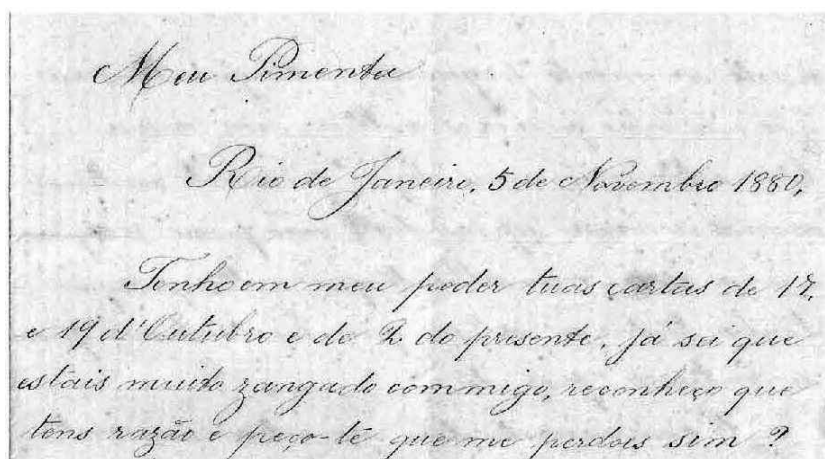 Meu Pimenta
Rio de Janeiro, 5 de Novembro 1880,
Tenho em meu poder tuas cartas de 17,
e 19 d'Outubro e de 2 do presente, já sei que
estais muito zangado commigo, reconheço que
tens razão e peço-te que me perdois sim?